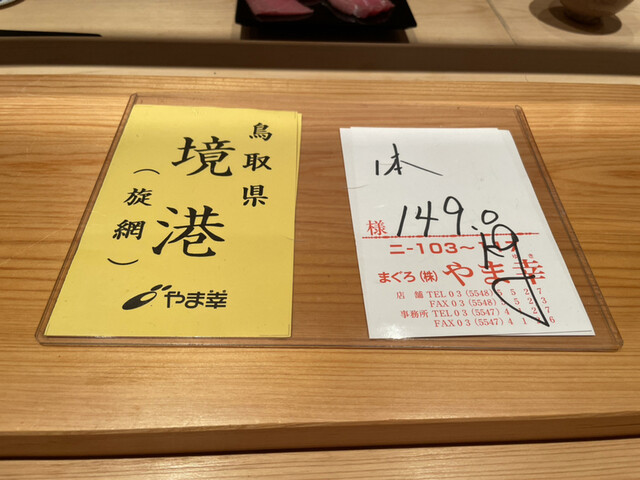 鳥取県
境港
（旋網）
やま幸
1本
149.0
様
ニ-103〜
まぐろ（株）やま幸
店舗 TEL 03（5548）5527
FAX 03（5548）5523
事務所 TEL 03（5547）4
FAX 03（5547）4